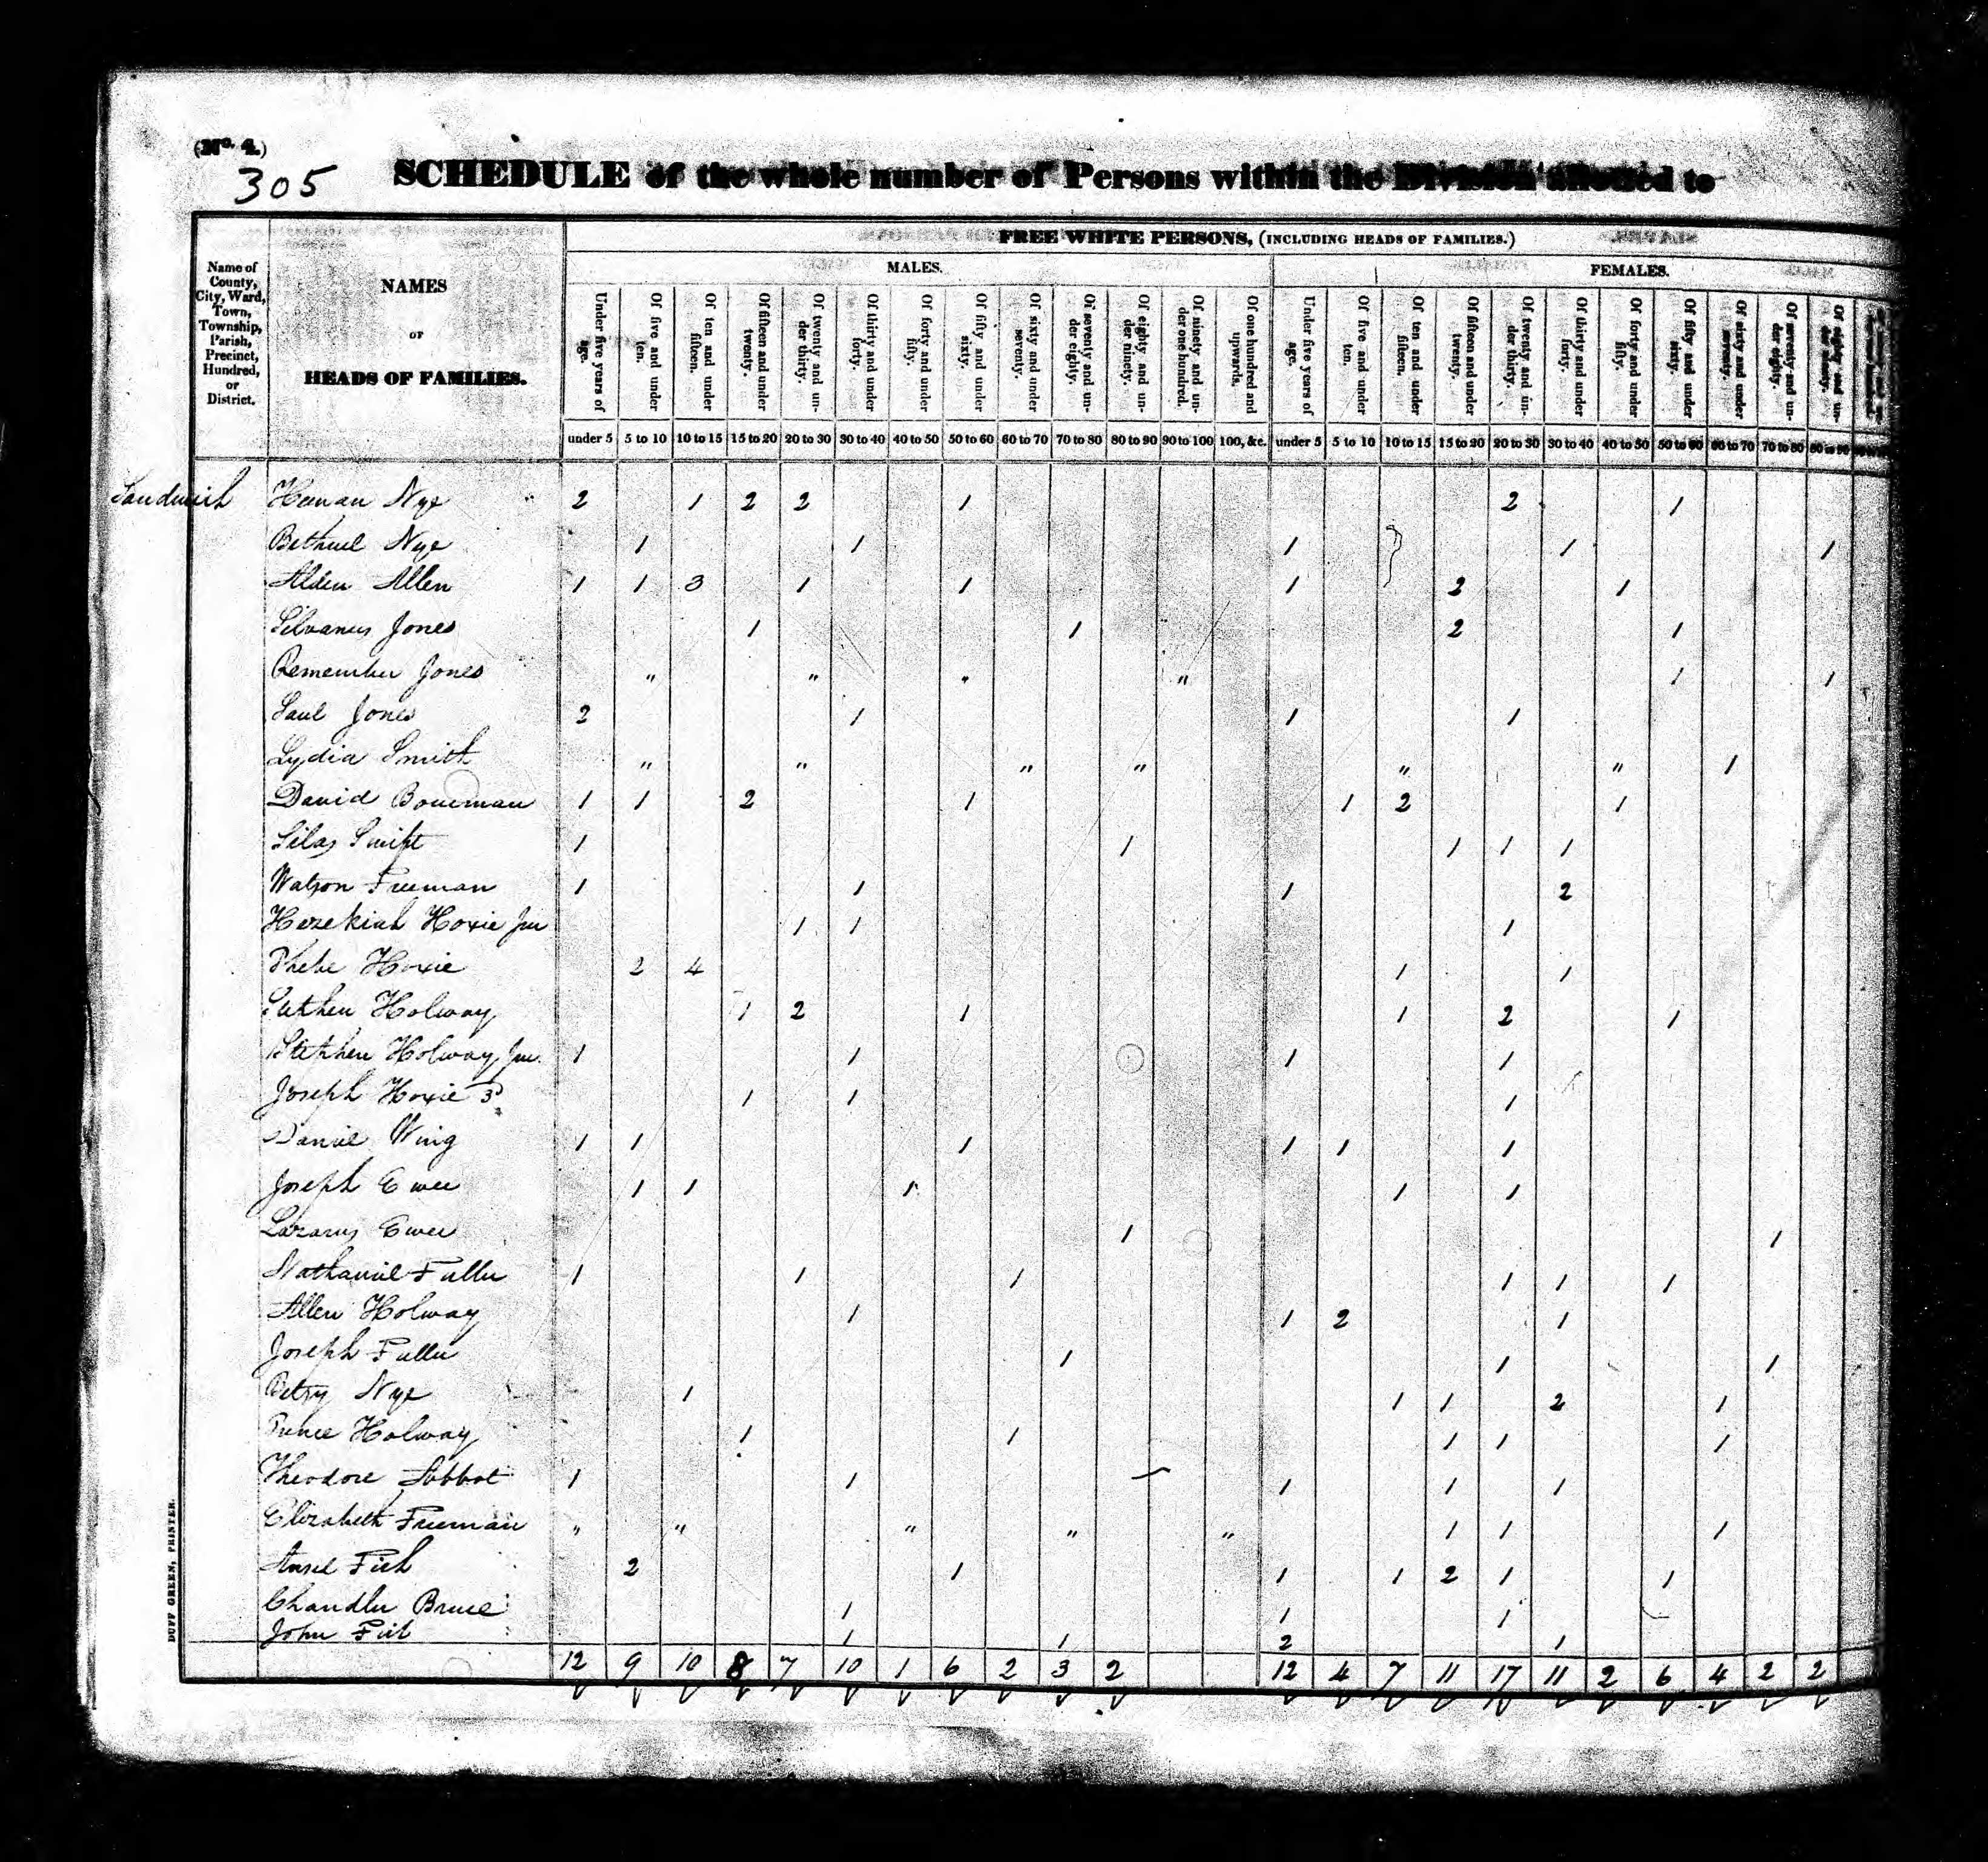 (No. 4.)
305
SCHEDULE of the whole number of Persons within the Division allotted to
FREE WHITE PERSONS, (INCLUDING HEADS OF FAMILIES.)
MALES. FEMALES.
Name of County, City, Ward, Town, Township, Parish, Precinct, Hundred, or District.
NAMES
OF
HEADS OF FAMILIES.
Under five years of age. Of five and under ten. Of ten and under fifteen. Of fifteen and under twenty. Of twenty and under thirty. Of thirty and under forty. Of forty and under fifty. Of fifty and under sixty. Of sixty and under seventy. Of seventy and under eighty. Of eighty and under ninety. Of ninety and under one hundred. Of one hundred and upwards. Under five years of age. Of five and under ten. Of ten and under fifteen. Of fifteen and under twenty. Of twenty and under thirty. Of thirty and under forty. Of forty and under fifty. Of fifty and under sixty. Of sixty and under seventy. Of seventy and under eighty. Of eighty and under ninety.
under 5 5 to 10 10 to 15 15 to 20 20 to 30 30 to 40 40 to 50 50 to 60 60 to 70 70 to 80 80 to 90 90 to 100 100, &c. under 5 5 to 10 10 to 15 15 to 20 20 to 30 30 to 40 40 to 50 50 to 60 60 to 70 70 to 80 80 to 90
Sandwich Heman Nye 2 1 2 2 1 2 1
Bethuel Nye 1 1 1 1 1
Alden Allen 1 1 3 1 1 1 2 1
Silvanus Jones 1 1 2 1
Remember Jones " " " " 1 1
Saul Jones 2 1 1 1
Lydia Smith " " " " " " 1
David Bourman 1 1 2 1 1 2 1
Silas Swift 1 1 1 1 1
Watson Freeman 1 1 1 2
Hezekiah Hoxie Jun 1 1 1
Phebe Hoxie 2 4 1 1
Stephen Holway 1 2 1 1 2 1
Stephen Holway Jun. 1 1 1 1
Joseph Hoxie 3d 1 1 1
Daniel Wing 1 1 1 1 1 1
Joseph Ewer 1 1 1 1 1
Lazarus Ewer 1 1
Nathaniel Fuller 1 1 1 1 1 1
Allen Holway 1 1 2 1
Joseph Fuller 1 1 1
Betsy Nye 1 1 1 2 1
Prince Holway 1 1 1 1 1
Theodore 1 1 1 1 1
Elizabeth Freeman " " " " " 1 1 1
Ansel Fish 2 1 1 1 2 1 1
Chandler Bruce 1 1 1
John Fish 1 1 2 1
12 9 10 8 7 10 1 6 2 3 2 12 4 7 11 17 11 2 6 4 2 2
DUFF GREEN, PRINTER.